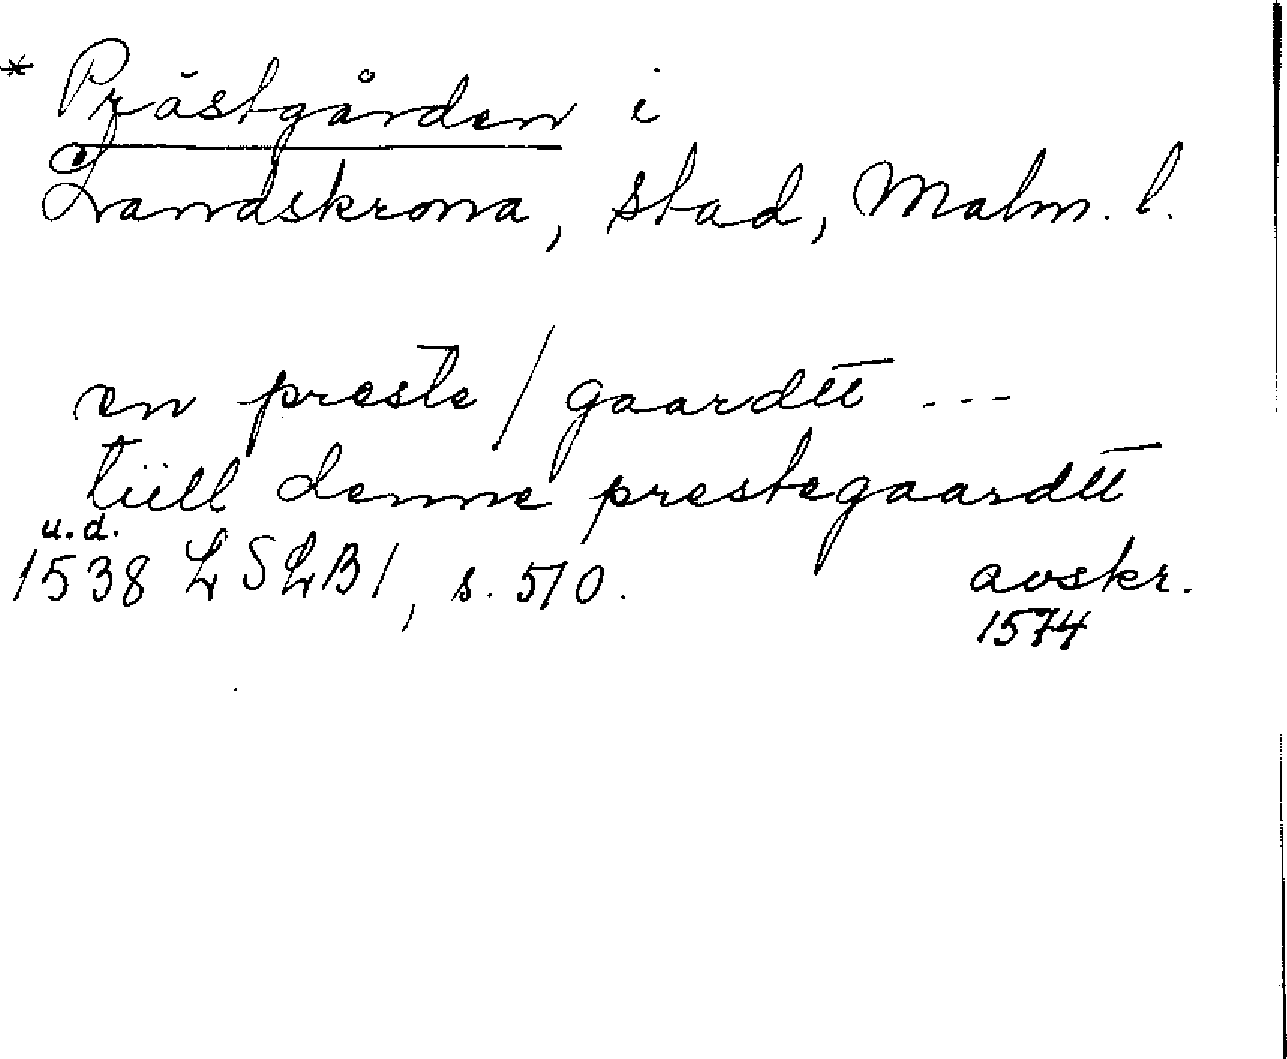 * Prästgården i
Landskrona, stad, Malm. l.
en preste/gaardtt ...
tiill denne prestegaardtt
u.d.
1538 LSLB 1, s. 510. avskr.
1574